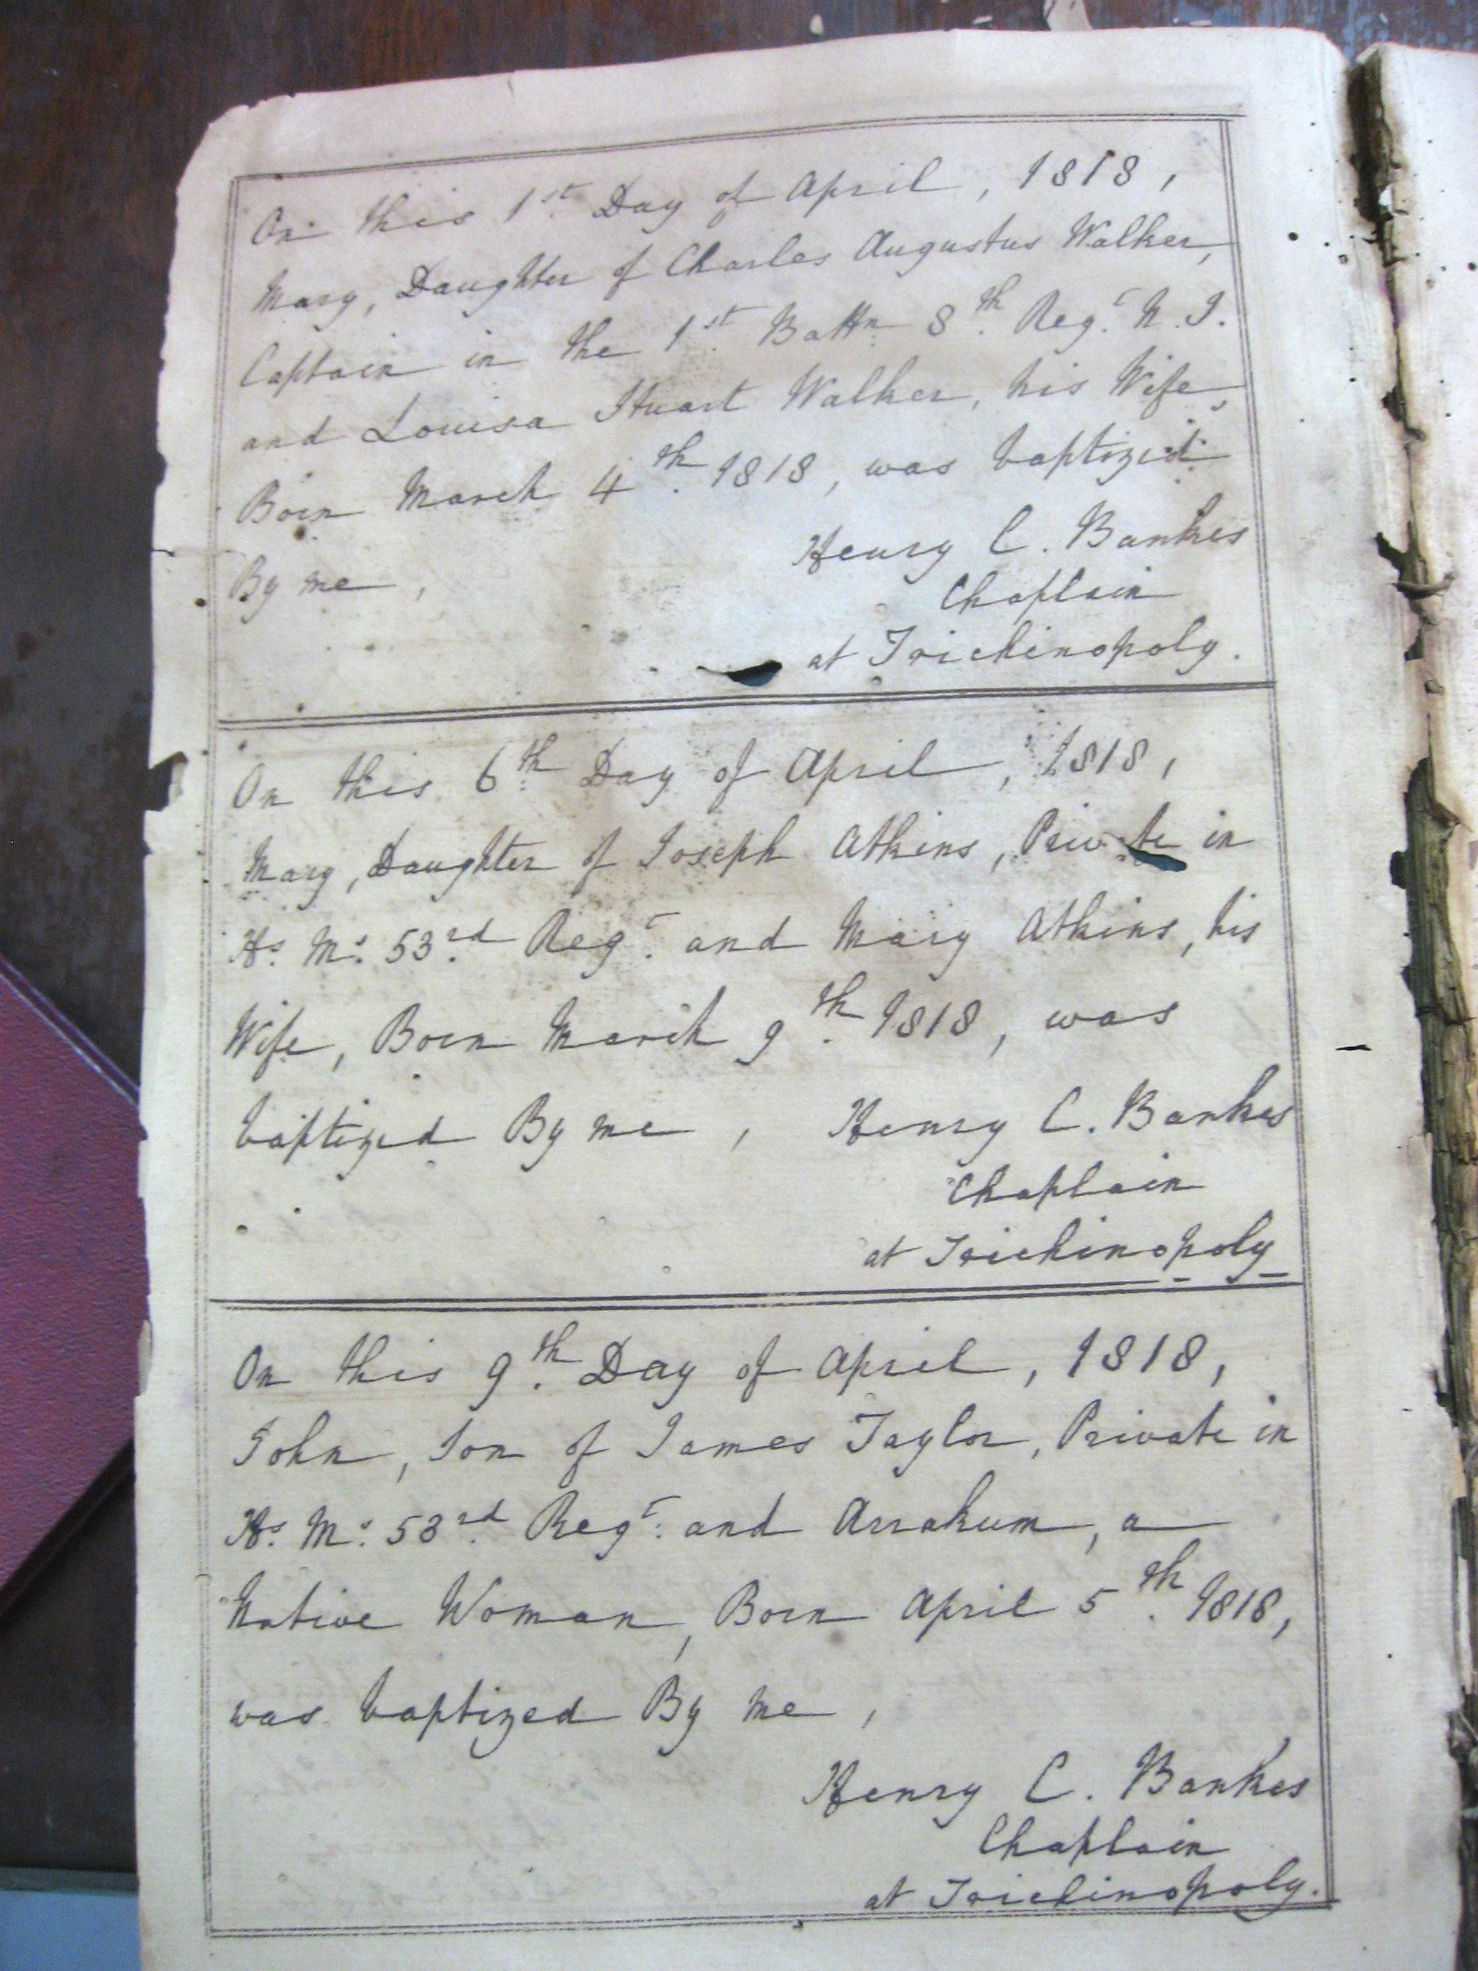 On this 1st Day of April, 1818,
Mary, Daughter of Charles Augustus Walker,
Captain in the 1st Battn 8th Regt N. I.
and Louisa Stuart Walker, his Wife,
Born March 4th 1818, was baptized
By me,
Henry C. Bankes
Chaplain
at Trichinopoly.
On this 6th Day of April, 1818,
Mary, Daughter of Joseph Atkins, Private in
Hs. Ms. 53rd Regt. and Mary Atkins, his
Wife, Born March 9th 1818, was
baptized By me, Henry C. Bankes
Chaplain
at Trichinopoly
On this 9th Day of April, 1818,
John, Son of James Taylor, Private in
Hs. Ms. 53rd Regt. and Arrakum, a
Native Woman, Born April 5th 1818,
was baptized By me,
Henry C. Bankes
Chaplain
at Trichinopoly.